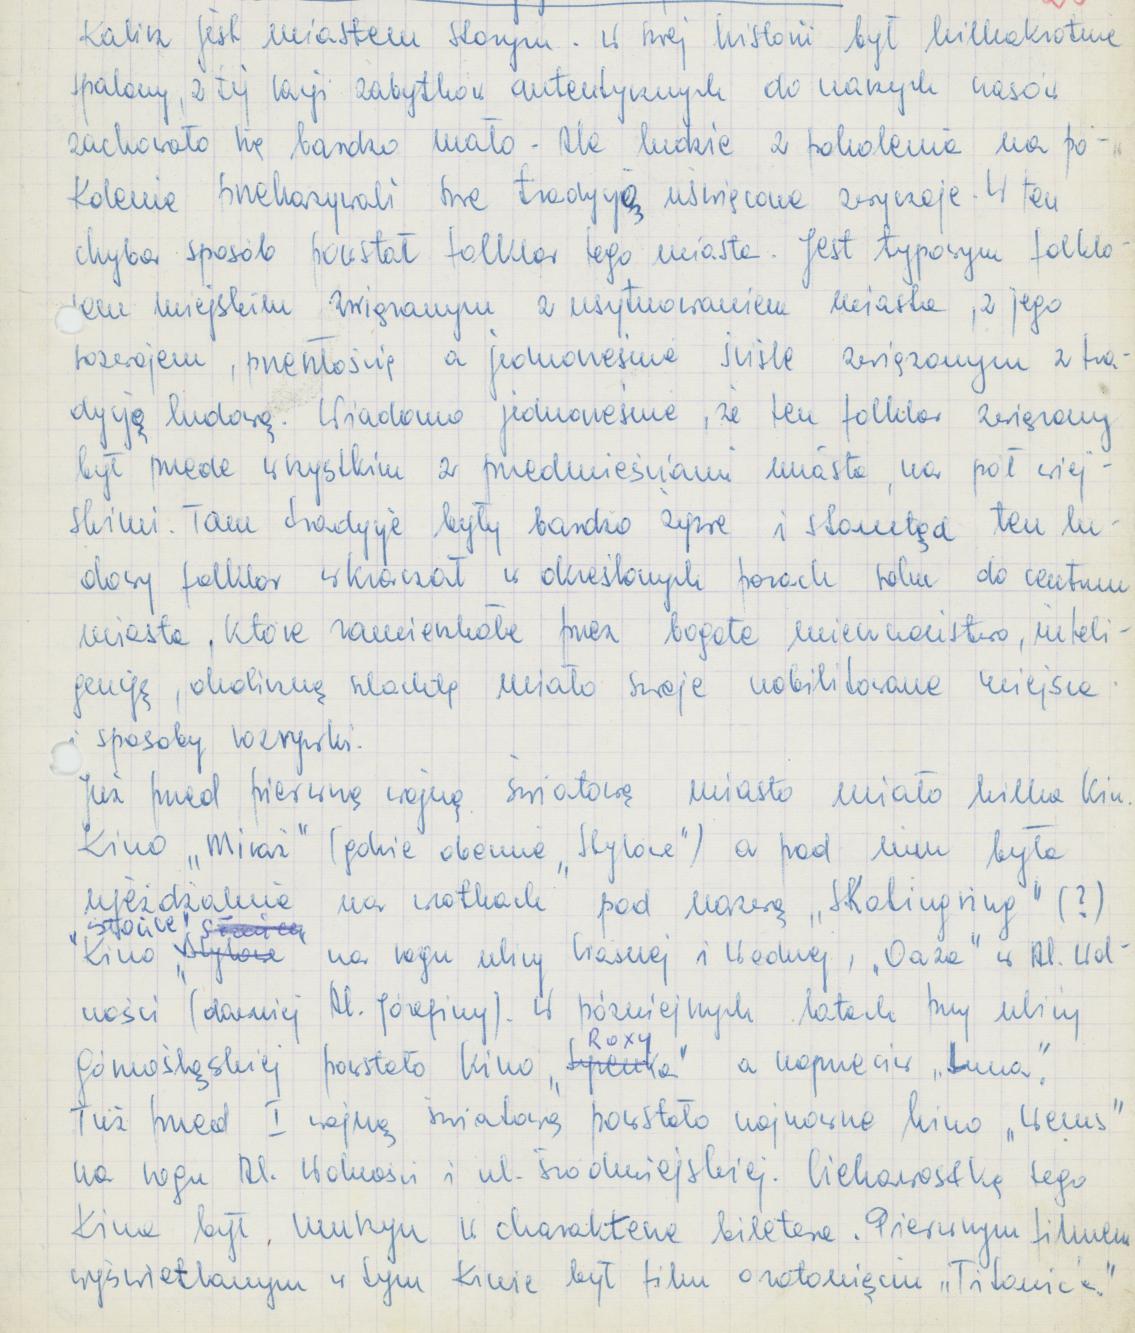 Kalisz jest miastem starym. W swej historii był kilkakrotnie
spalony, z tej racji zabytków autentycznych do naszych czasów
zachowało się bardzo mało. Ale ludzie z pokolenia na po-
kolenie przekazywali swe tradycją uświęcone zwyczaje. W ten
chyba sposób powstał folklor tego miasta. Jest typowym folklo-
rem miejskim związanym z usytuowaniem miasta, z jego
rozwojem, przeszłością a jednocześnie ściśle związanym z tra-
dycją ludową. Wiadomo jednocześnie, że ten folklor związany
był przede wszystkim z przedmieściami miasta, na pół wiej-
skimi. Tam tradycje były bardzo żywe i stamtąd ten lu-
dowy folklor wkraczał w określonych porach roku do centrum
miasta, które zamieszkałe przez bogate mieszczaństwo, inteli-
gencję, okoliczną szlachtę miało swoje nobilitowane miejsca
i sposoby rozrywki.
Już przed pierwszą wojną światową miasto miało kilka kin.
Kino „Miraż" (gdzie obecnie „Stylowe") a pod nim była
ujeżdżalnia na wrotkach pod nazwą „Skatingring" (?)
"Słońce"
Kino „Stylowe" na rogu ulicy Ciasnej i Wodnej, „Oaza" w Al. Wol-
ności (dawniej Al. Józefiny). W późniejszych latach przy ulicy
Roxy
Górnośląskiej powstało kino „Syrenka" a naprzeciw „Luna".
Tuż przed I wojną światową powstało najnowsze kino „Wenus"
na rogu Al. Wolności i ul. Śródmiejskiej. Ciekawostką tego
kina był murzyn w charakterze biletera. Pierwszym filmem
wyświetlanym w tym kinie był film o zatonięciu „Titanica".